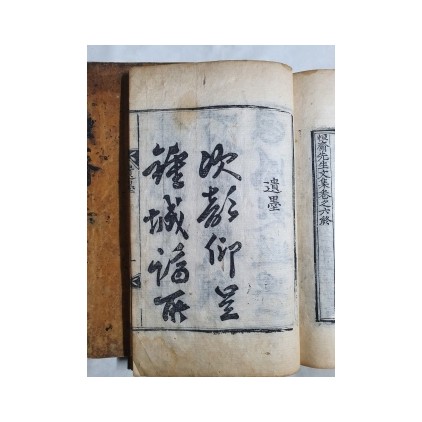 恨齋先生文集卷之六終
遺墨
次韻仰呈
鍾城謫所